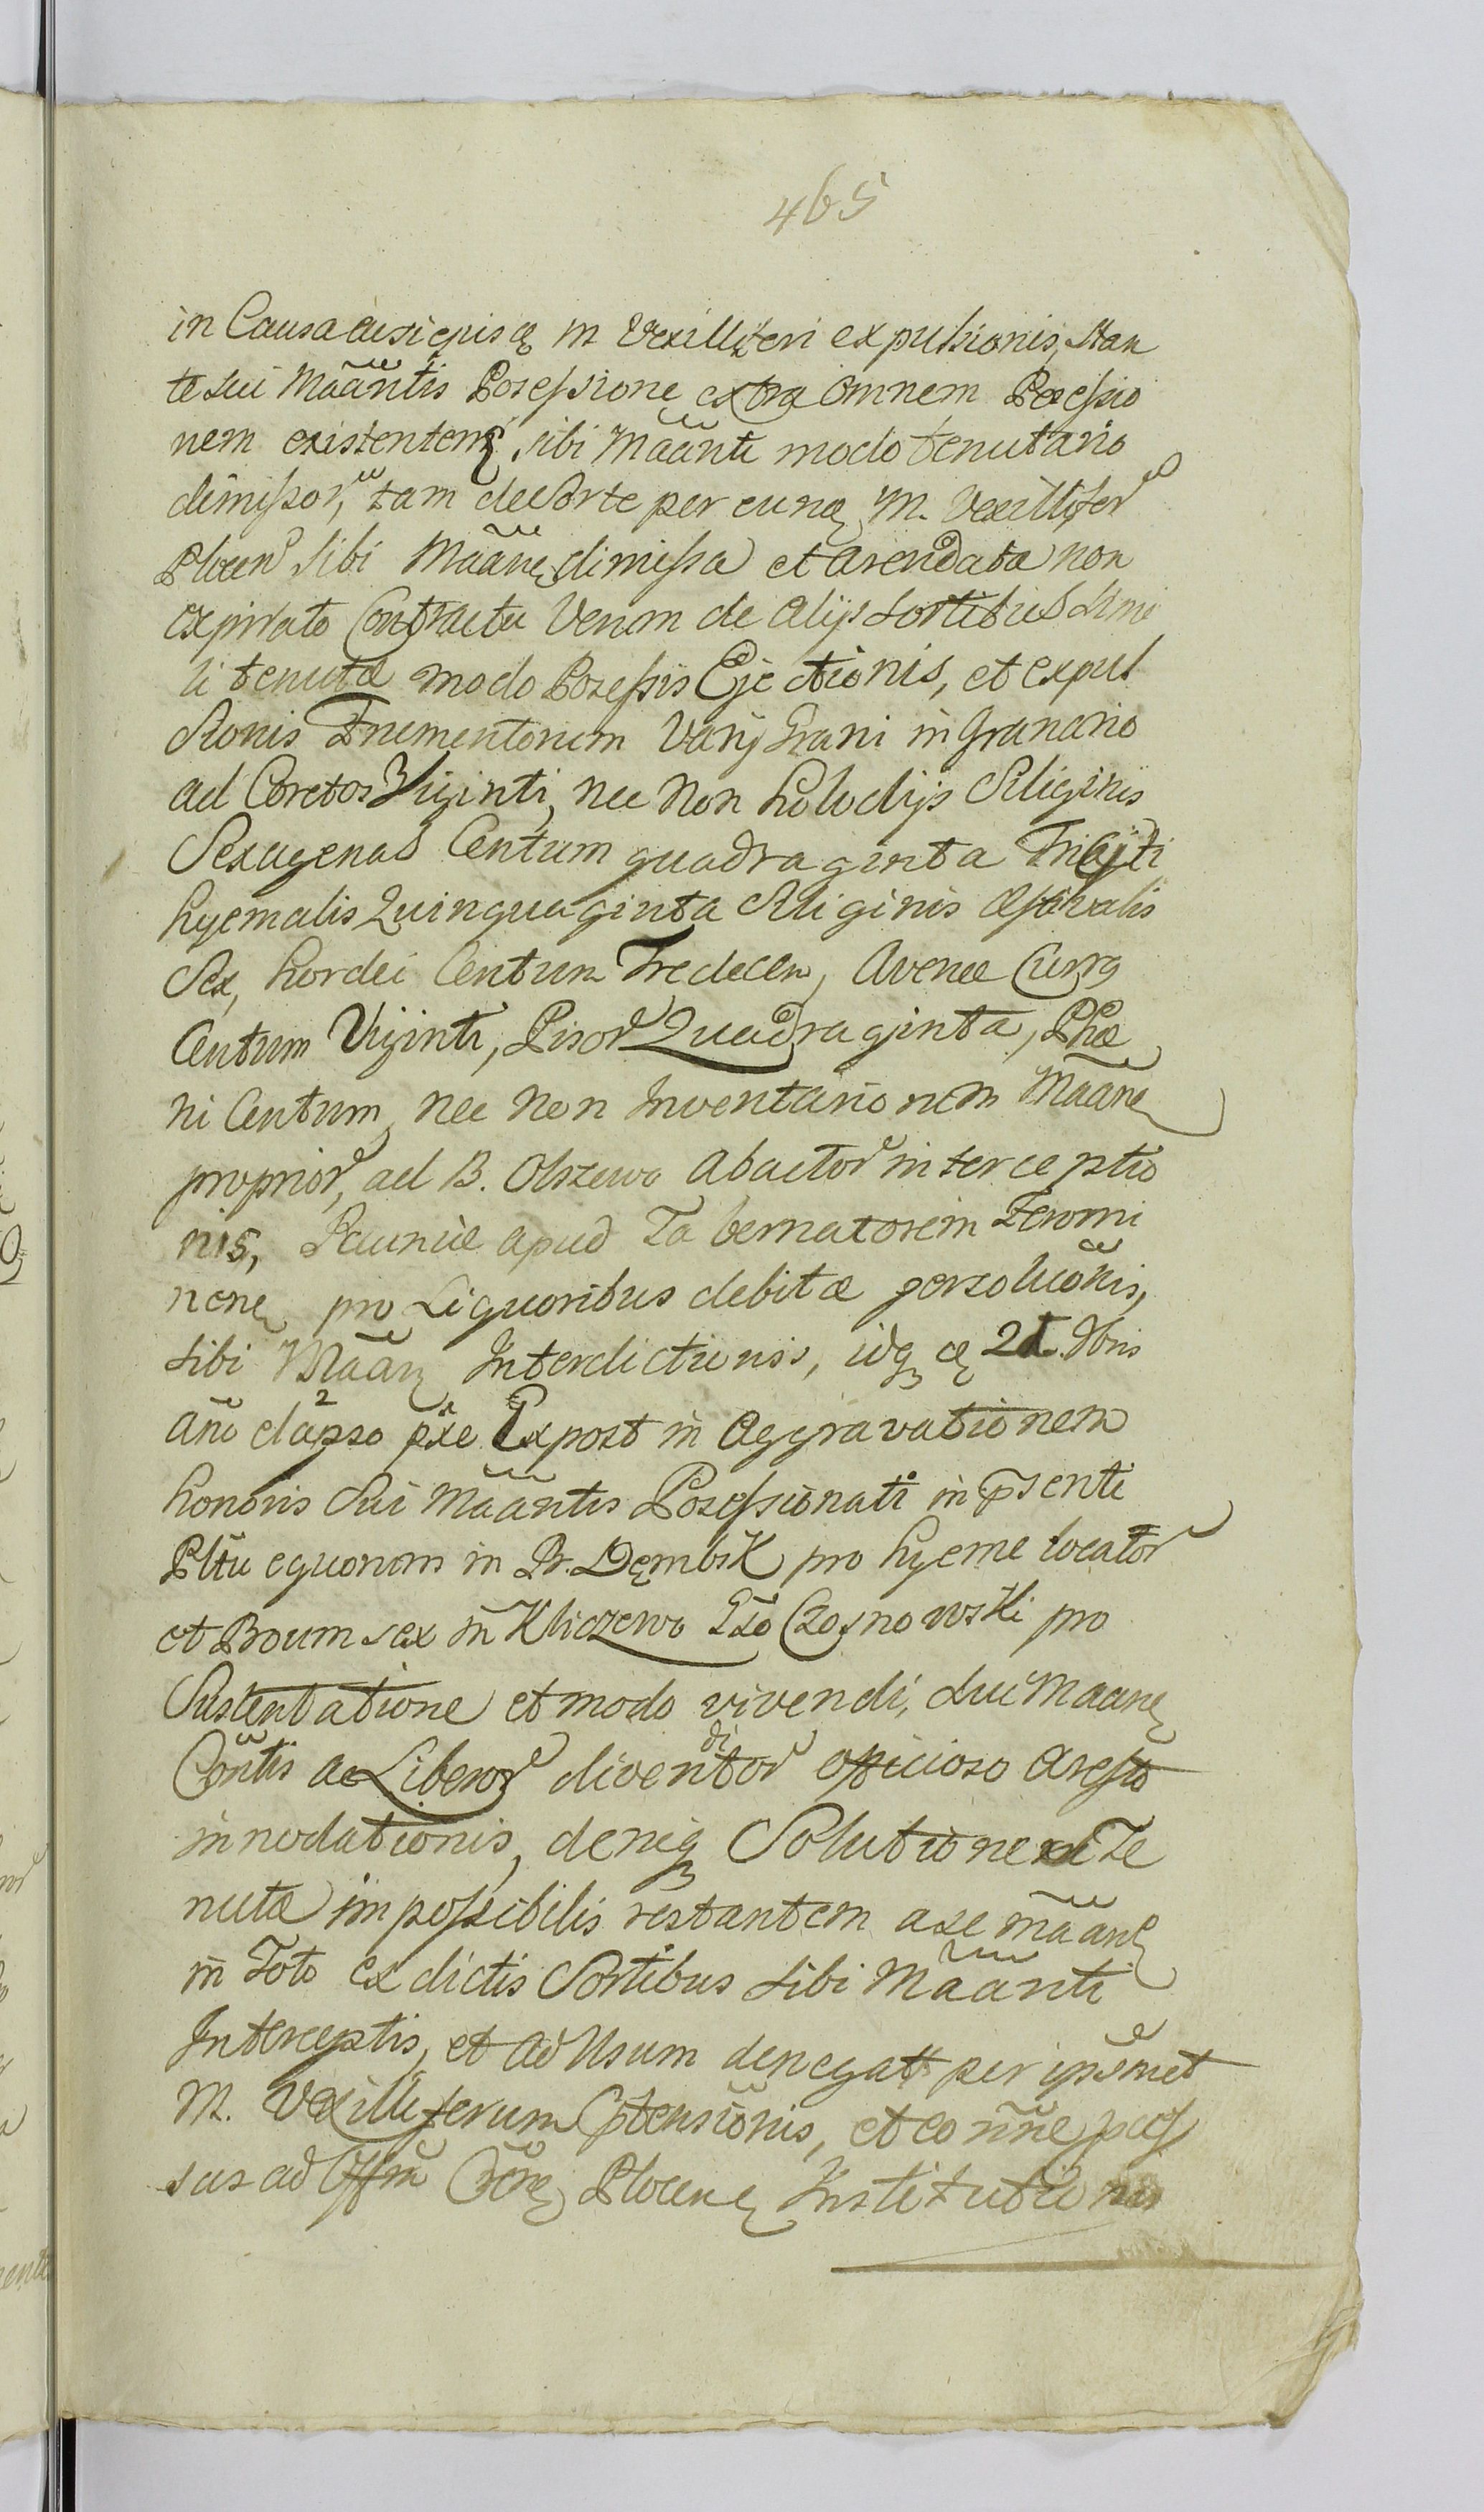 465
in Causa M Vexilliferi expulsionis, stan
te sui Maāntis Possessione extra omnem Possessio
nem existentem, sibi Maānti modo tenutario
dimissor, tam de Sorte per eunđ M. Vexillifer
Plocen sibi Maānę dimissa et arendata non
expirato Contractu Verum de alijs Sortibus simi
li tenutæ modo Possessis Ejectionis, et expul
sionis Frumentorum Varij Grani in Granario
ad Coretos Viginti, nec non Silodijs Siliginis
Sexagenas Centum quadraginta Tritici
hyemalis Quinquaginta Siliginis æstivalis
Sex, hordei Centum Tredecem, Avenæ Curr
Centum Viginti, Pisor Quadraginta, Phæ
ni Centum, nec non Inventariorum Maānę
proprior, ad B. Olszewo abactor interceptio
nis, Pecuniæ apud Tabernatorem Feromi
nenę pro Liquoribus debitæ persoluōnis,
sibi Māanę Interdictionis, idq 2d. Xbris
ańo elapso pxe Expost in Aggravationem
honoris Sui Māantis Posessionati in p̄senti
Pltu equorum in Br. Dęmbsk pro hyeme locator
et Boum sex in Kliczewo Gso Czosnowski pro
Sustentatione et modo vivendi, sui Maanę
Cōntis ac Liberor diventditor officioso Aresto
innodationis, deniq Solutionem Te
nutæ impossibilis restantem a se māanę
in Toto ex dictis Sortibus sibi Māanti
Interceptis, et ad Usum denegatt per ipsmet
M. Vexilliferum Ptensiōnis, et eo nn̄e pas
sus ad Offm Plocenę Institutionis